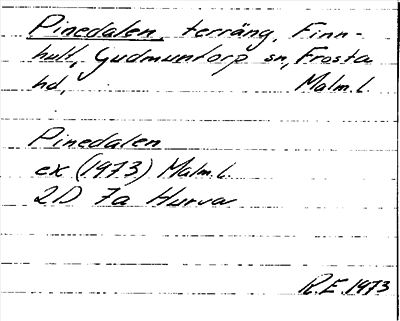 Pinedalen, terräng, Finn-
hult, Gudmuntorp sn, Frosta
hd, Malm. l.
Pinedalen
ex (1973) Malm. l.
2D 7a Hurva
R.E. 1973